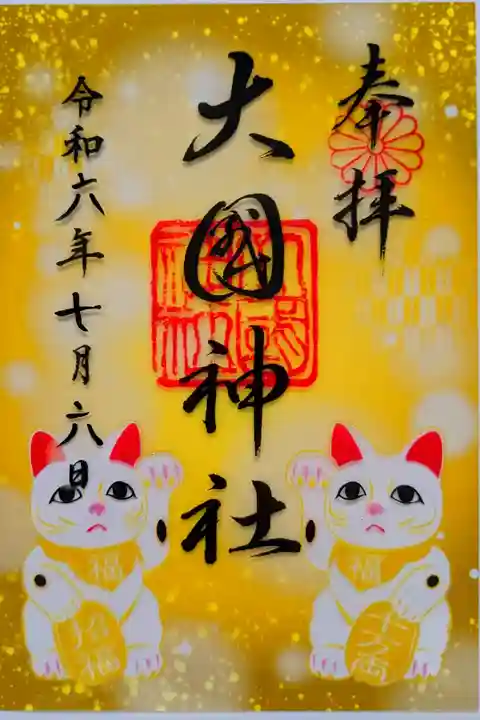 奉拝
大國神社
令和六年七月六日
福
招福
福